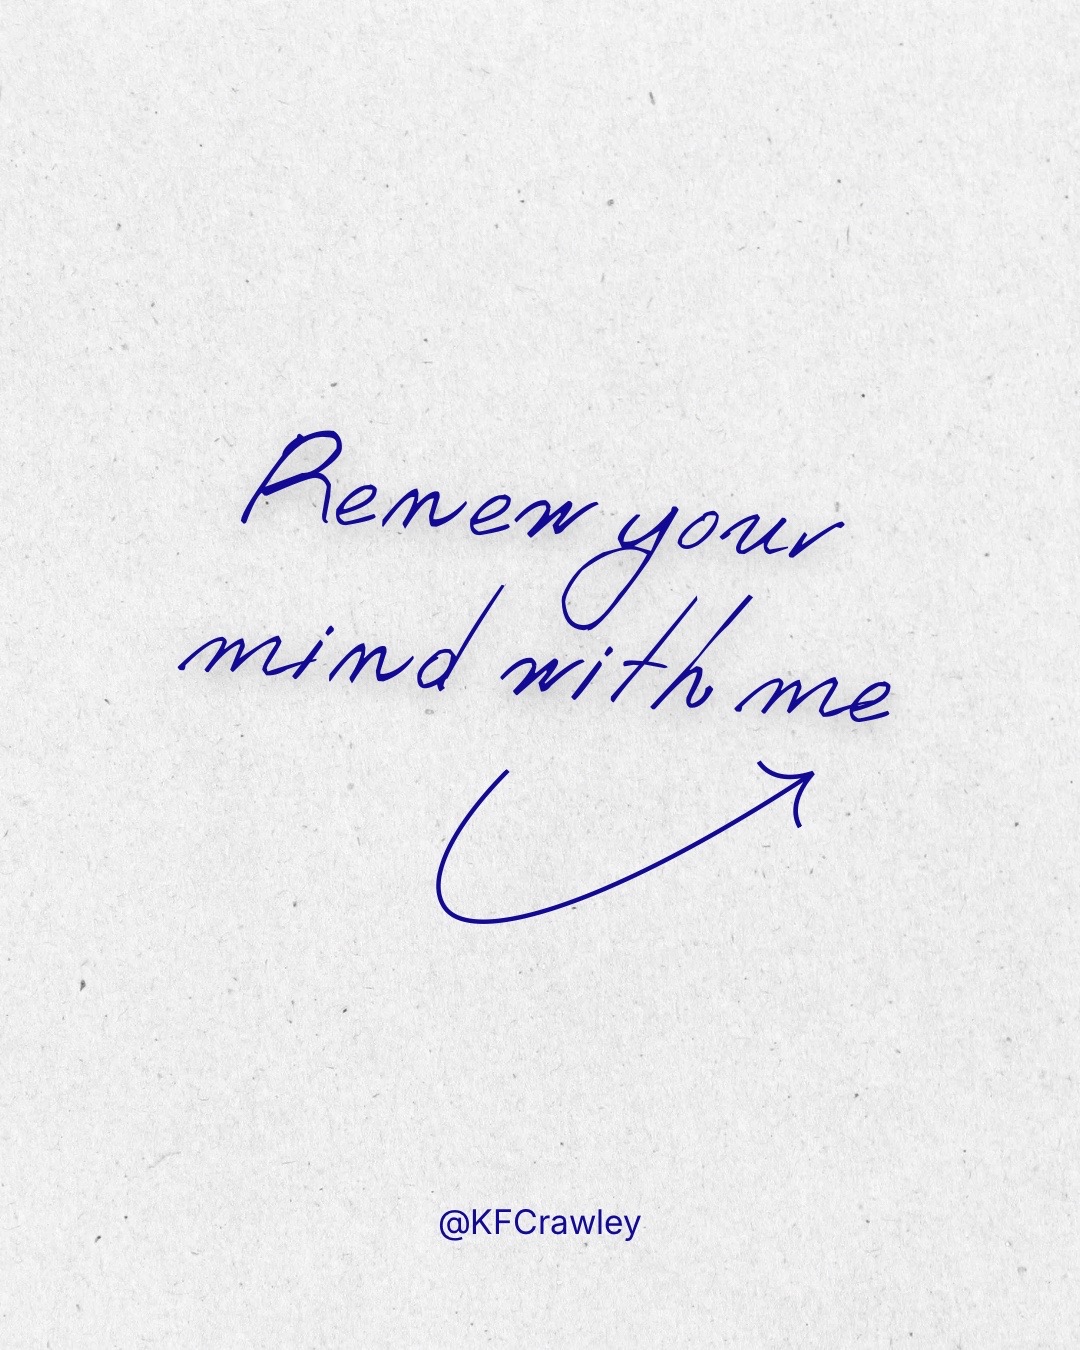 Renew your
mind with me
@KFCrawley